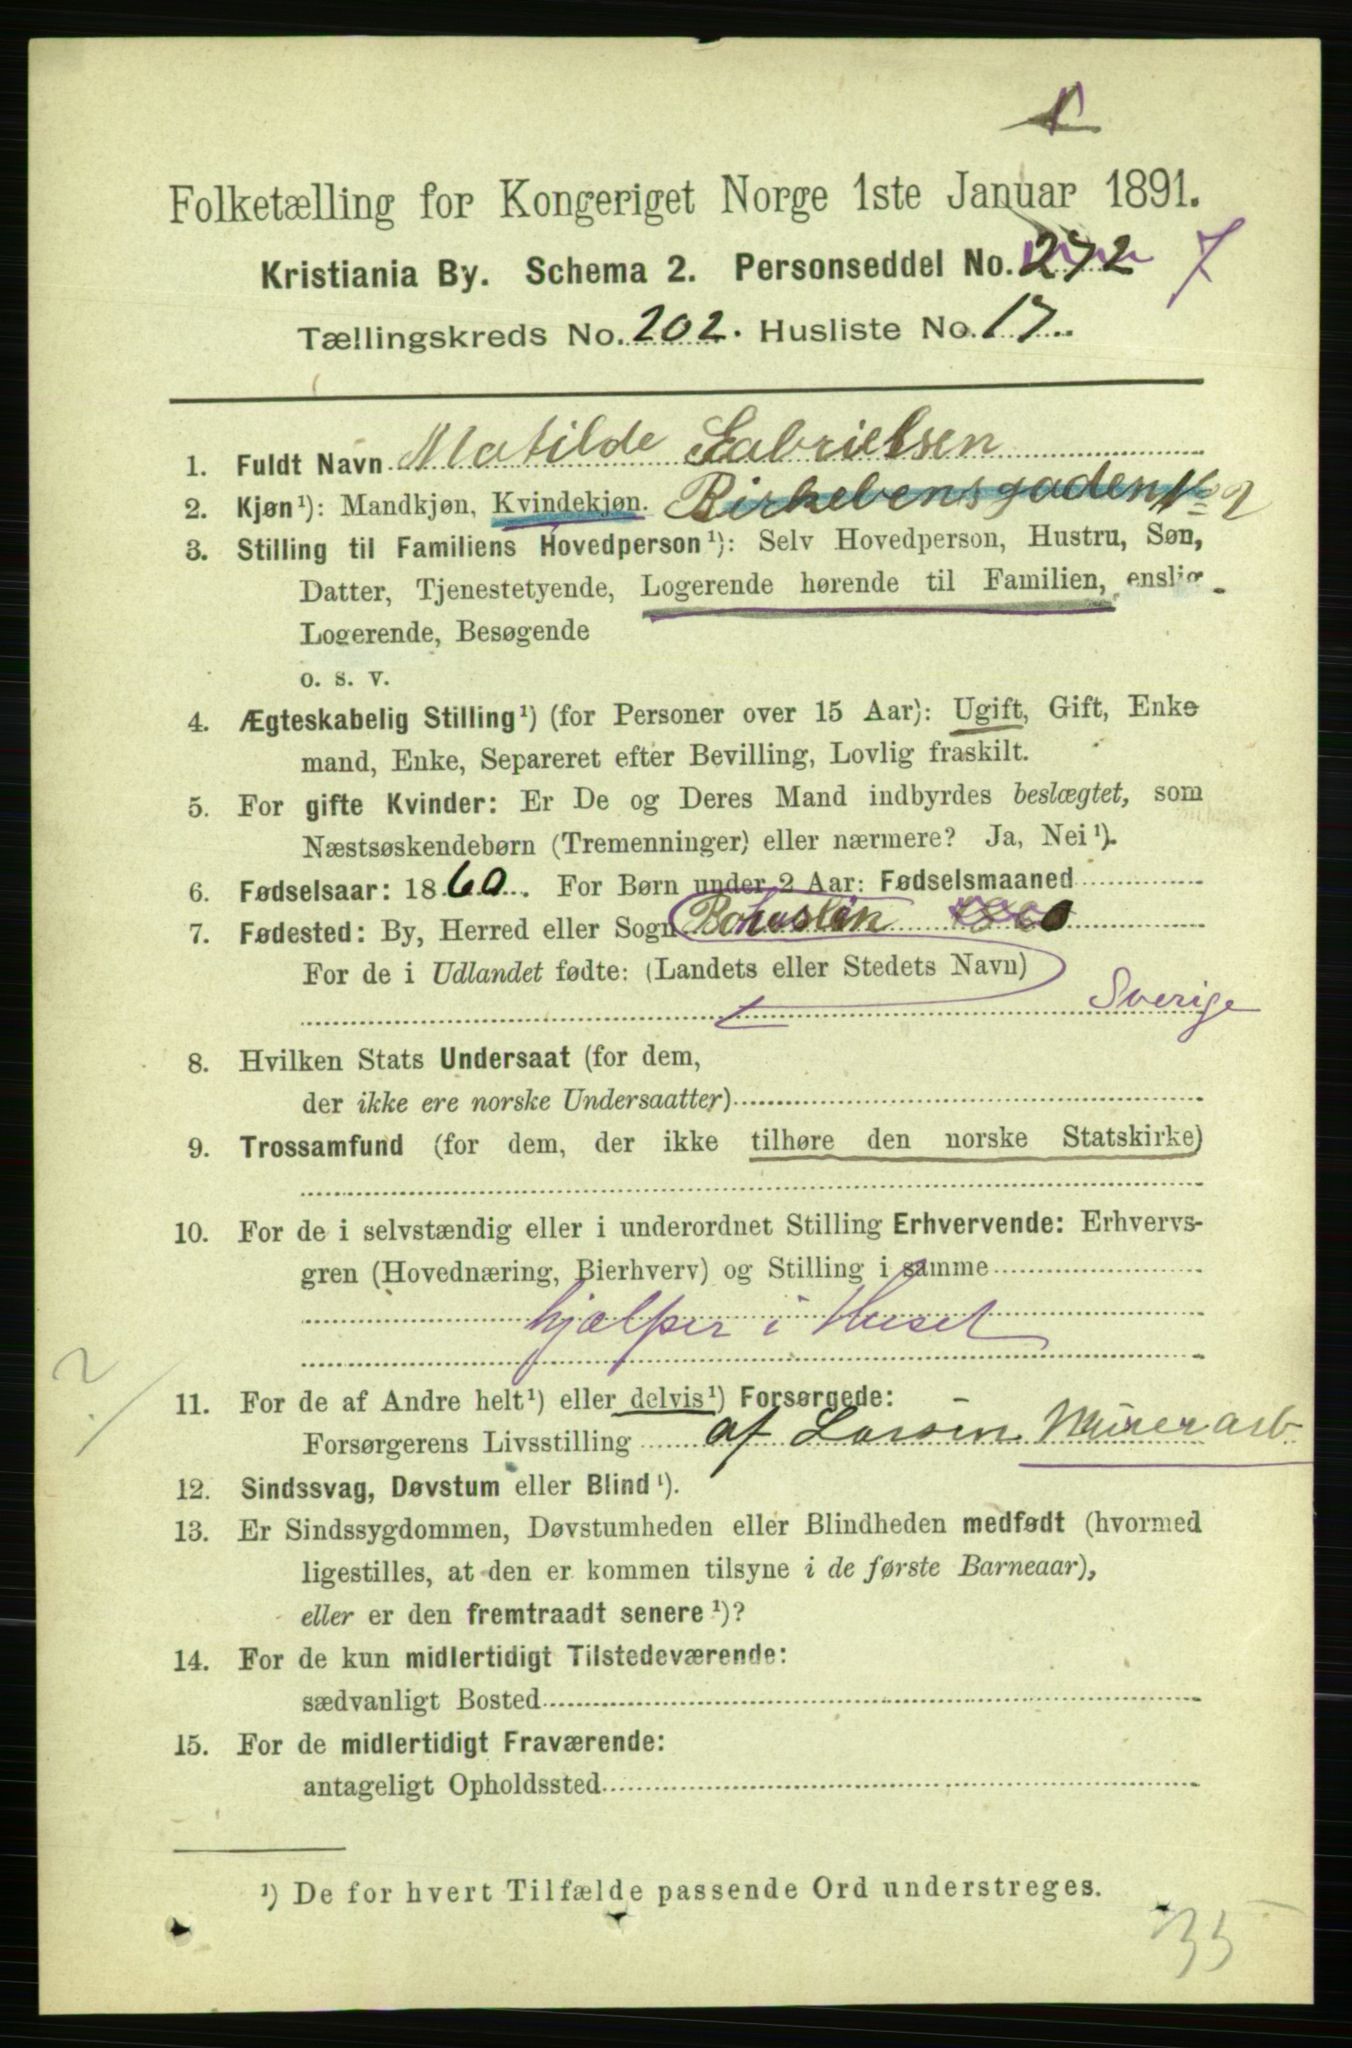 Folketælling for Kongeriget Norge 1ste Januar 1891.
Kristiania By. Schema 2. Personseddel No. 272 7
Tællingskreds No. 202. Husliste No. 17.
1. Fuldt Navn Matilde Gabrielsen
2. Kjøn¹): Mandkjøn, Kvindekjøn. Birkebensgaden No 9
3. Stilling til Familiens Hovedperson¹): Selv Hovedperson, Hustru, Søn,
Datter, Tjenestetyende, Logerende hørende til Familien, enslig
Logerende, Besøgende
o. s. v.
4. Ægteskabelig Stilling¹) (for Personer over 15 Aar): Ugift, Gift, Enke
mand, Enke, Separeret efter Bevilling, Lovlig fraskilt.
5. For gifte Kvinder: Er De og Deres Mand indbyrdes beslægtet, som
Næstsøskendebørn (Tremenninger) eller nærmere? Ja, Nei¹).
6. Fødselsaar: 1860. For Børn under 2 Aar: Fødselsmaaned
7. Fødested: By, Herred eller Sogn Bohuslän 1860
For de i Udlandet fødte: (Landets eller Stedets Navn)
Sverige
8. Hvilken Stats Undersaat (for dem,
der ikke ere norske Undersaatter)
9. Trossamfund (for dem, der ikke tilhøre den norske Statskirke)
10. For de i selvstændig eller i underordnet Stilling Erhvervende: Erhvervs-
gren (Hovednæring, Bierhverv) og Stilling i samme
hjælper i Huset
11. For de af Andre helt¹) eller delvis¹) Forsørgede:
Forsørgerens Livsstilling af Larsen Murerarb
12. Sindssvag, Døvstum eller Blind¹).
13. Er Sindssygdommen, Døvstumheden eller Blindheden medfødt (hvormed
ligestilles, at den er kommen tilsyne i de første Barneaar),
eller er den fremtraadt senere¹)?
14. For de kun midlertidigt Tilstedeværende:
sædvanligt Bosted
15. For de midlertidigt Fraværende:
antageligt Opholdssted
¹) De for hvert Tilfælde passende Ord understreges.
35